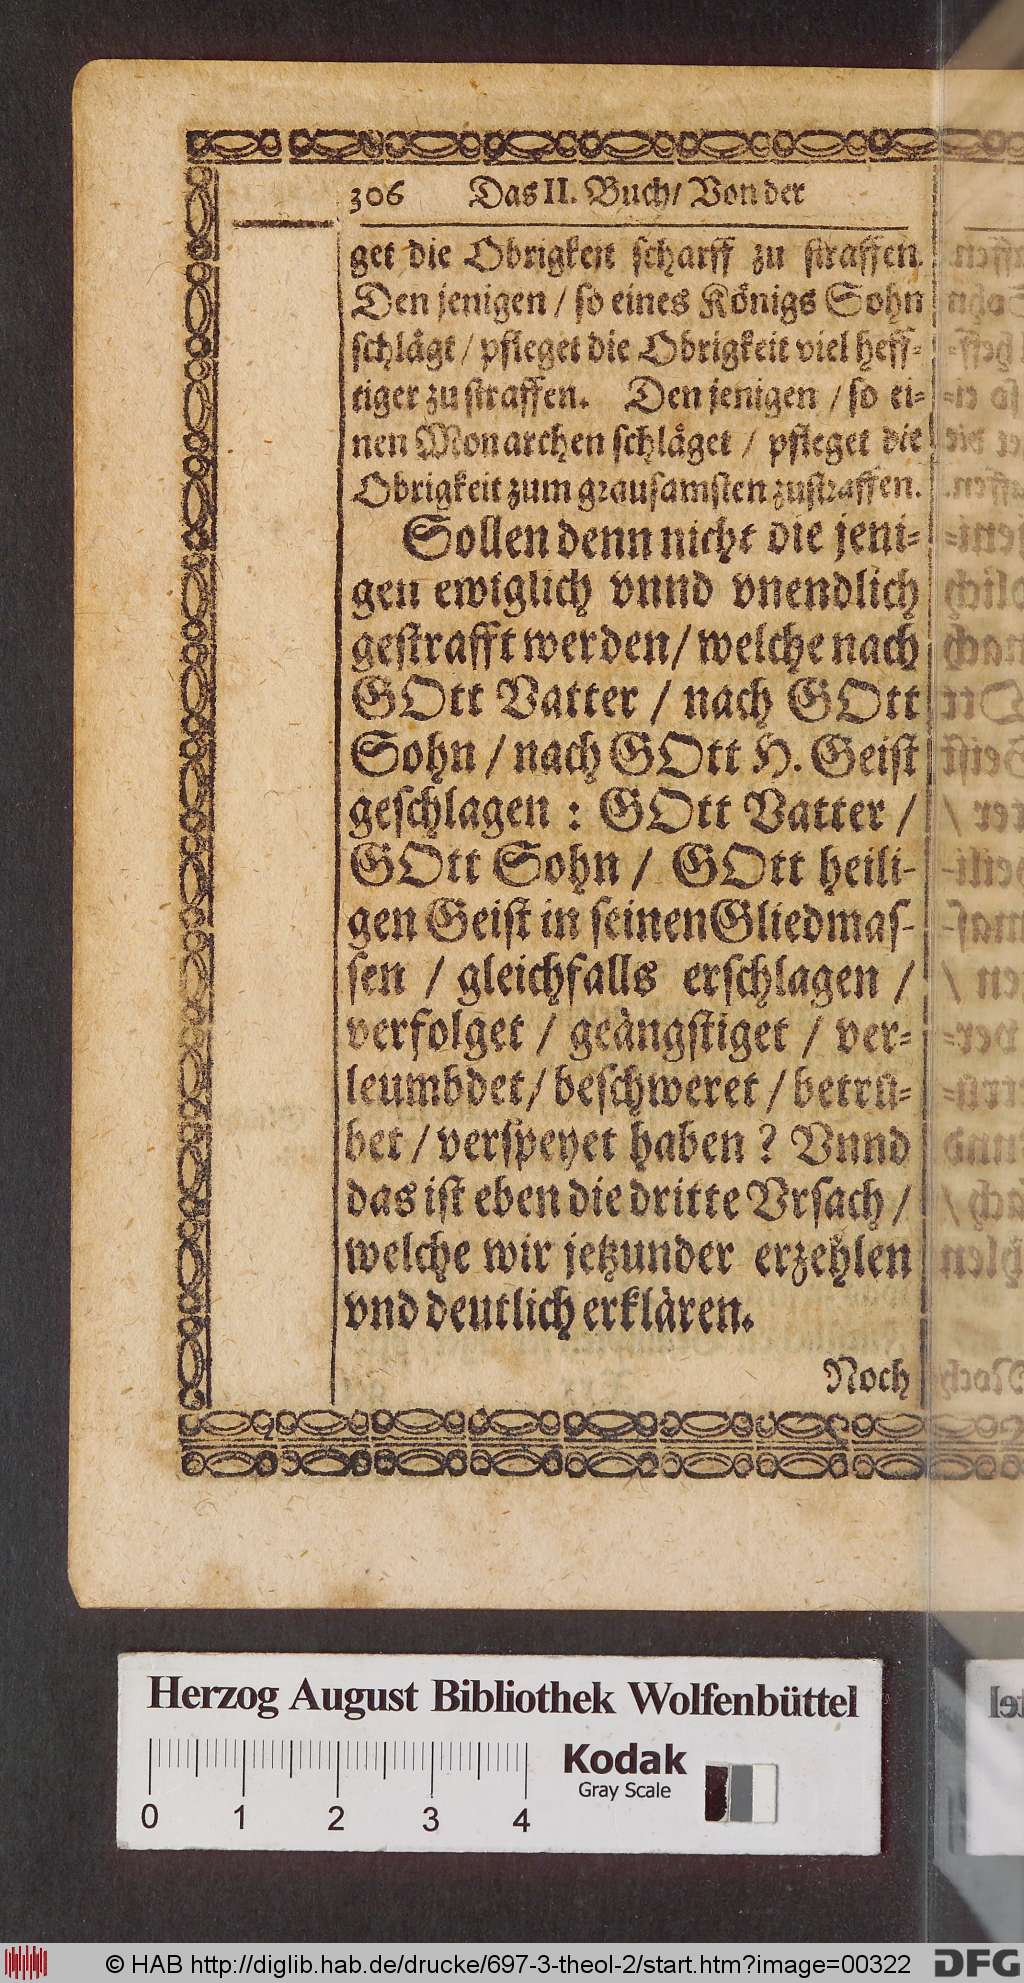 306 Das II. Buch/ Von der
get die Obrigkeit scharff zu straffen.
Den jenigen / so eines Königs Sohn
schlågt / pfleget die Obrigkeit viel heff-
tiger zu straffen. Den jenigen / so ei-
nen Monarchen schlåget / pfleget die
Obrigkeit zum grausamsten zustraffen.
Sollen denn nicht die jeni-
gen ewiglich vnnd vnendlich
gestrafft werden/ welche nach
GOtt Vatter / nach GOtt
Sohn / nach GOtt H. Geist
geschlagen : GOtt Vatter /
GOtt Sohn / GOtt heili-
gen Geist in seinen Gliedmas-
sen / gleichfalls erschlagen /
verfolget / geångstiget / ver-
leumbdet/ beschweret / betrü-
bet / verspeyet haben ? Vnnd
das ist eben die dritte Vrsach /
welche wir jetzunder erzehlen
vnd deutlich erklären.
Noch
Herzog August Bibliothek Wolfenbüttel
Kodak
Gray Scale
0 1 2 3 4
© HAB http://diglib.hab.de/drucke/697-3-theol-2/start.htm?image=00322
DFG